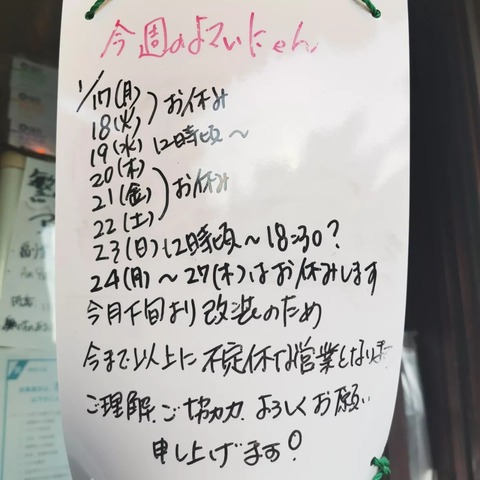 今週のよていにゃん
1/17(月)
18(火) お休み
19(水) 12時頃〜
20(木)
21(金) お休み
22(土)
23(日)12時頃〜18:30?
24(月)〜27(木)はお休みします
今月下旬より改装のため
今まで以上に不定休な営業となります
ご理解、ご協力、よろしくお願い
申し上げます!